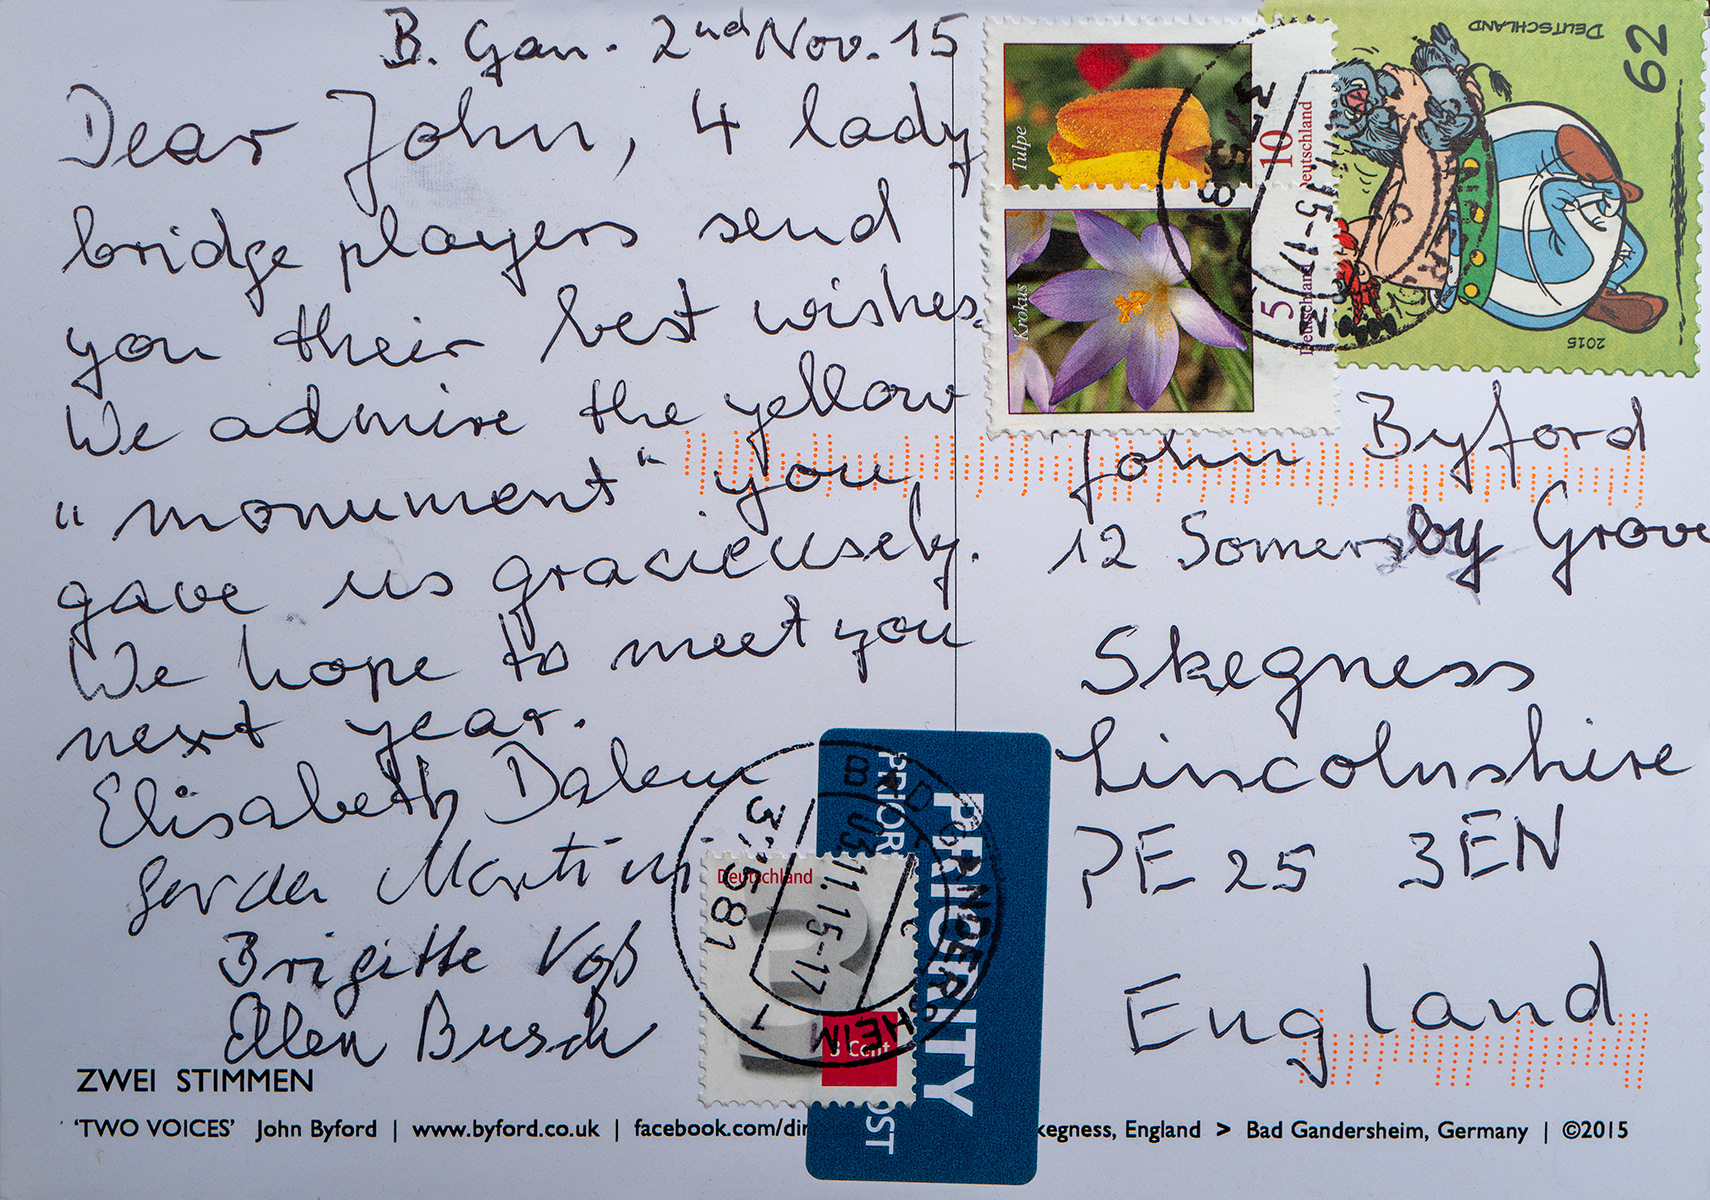 B. Gan. 2nd Nov. 15
Dear John, 4 lady
bridge players send
you their best wishes.
We admire the yellow
"monument" you
gave us gracieusely.
We hope to meet you
next year.
Elisabeth
Gerda Martini
Brigitte Voß
Ellen Busch
ZWEI STIMMEN
'TWO VOICES' John Byford | www.byford.co.uk | facebook.com/dir
kegness, England > Bad Gandersheim, Germany | ©2015
Tulpe
10
Deutschland
Krokus
5
Deutschland
DEUTSCHLAND
62
2015
37581
3.11.15-17
John Byford
12 Somersby Grove
Skegness
Lincolnshire
PE 25 3EN
England
PRIORITY
PRIOR
OST
Deutschland
3 Cent
BAD GANDERSHEIM 1
37581
03.11.15-17